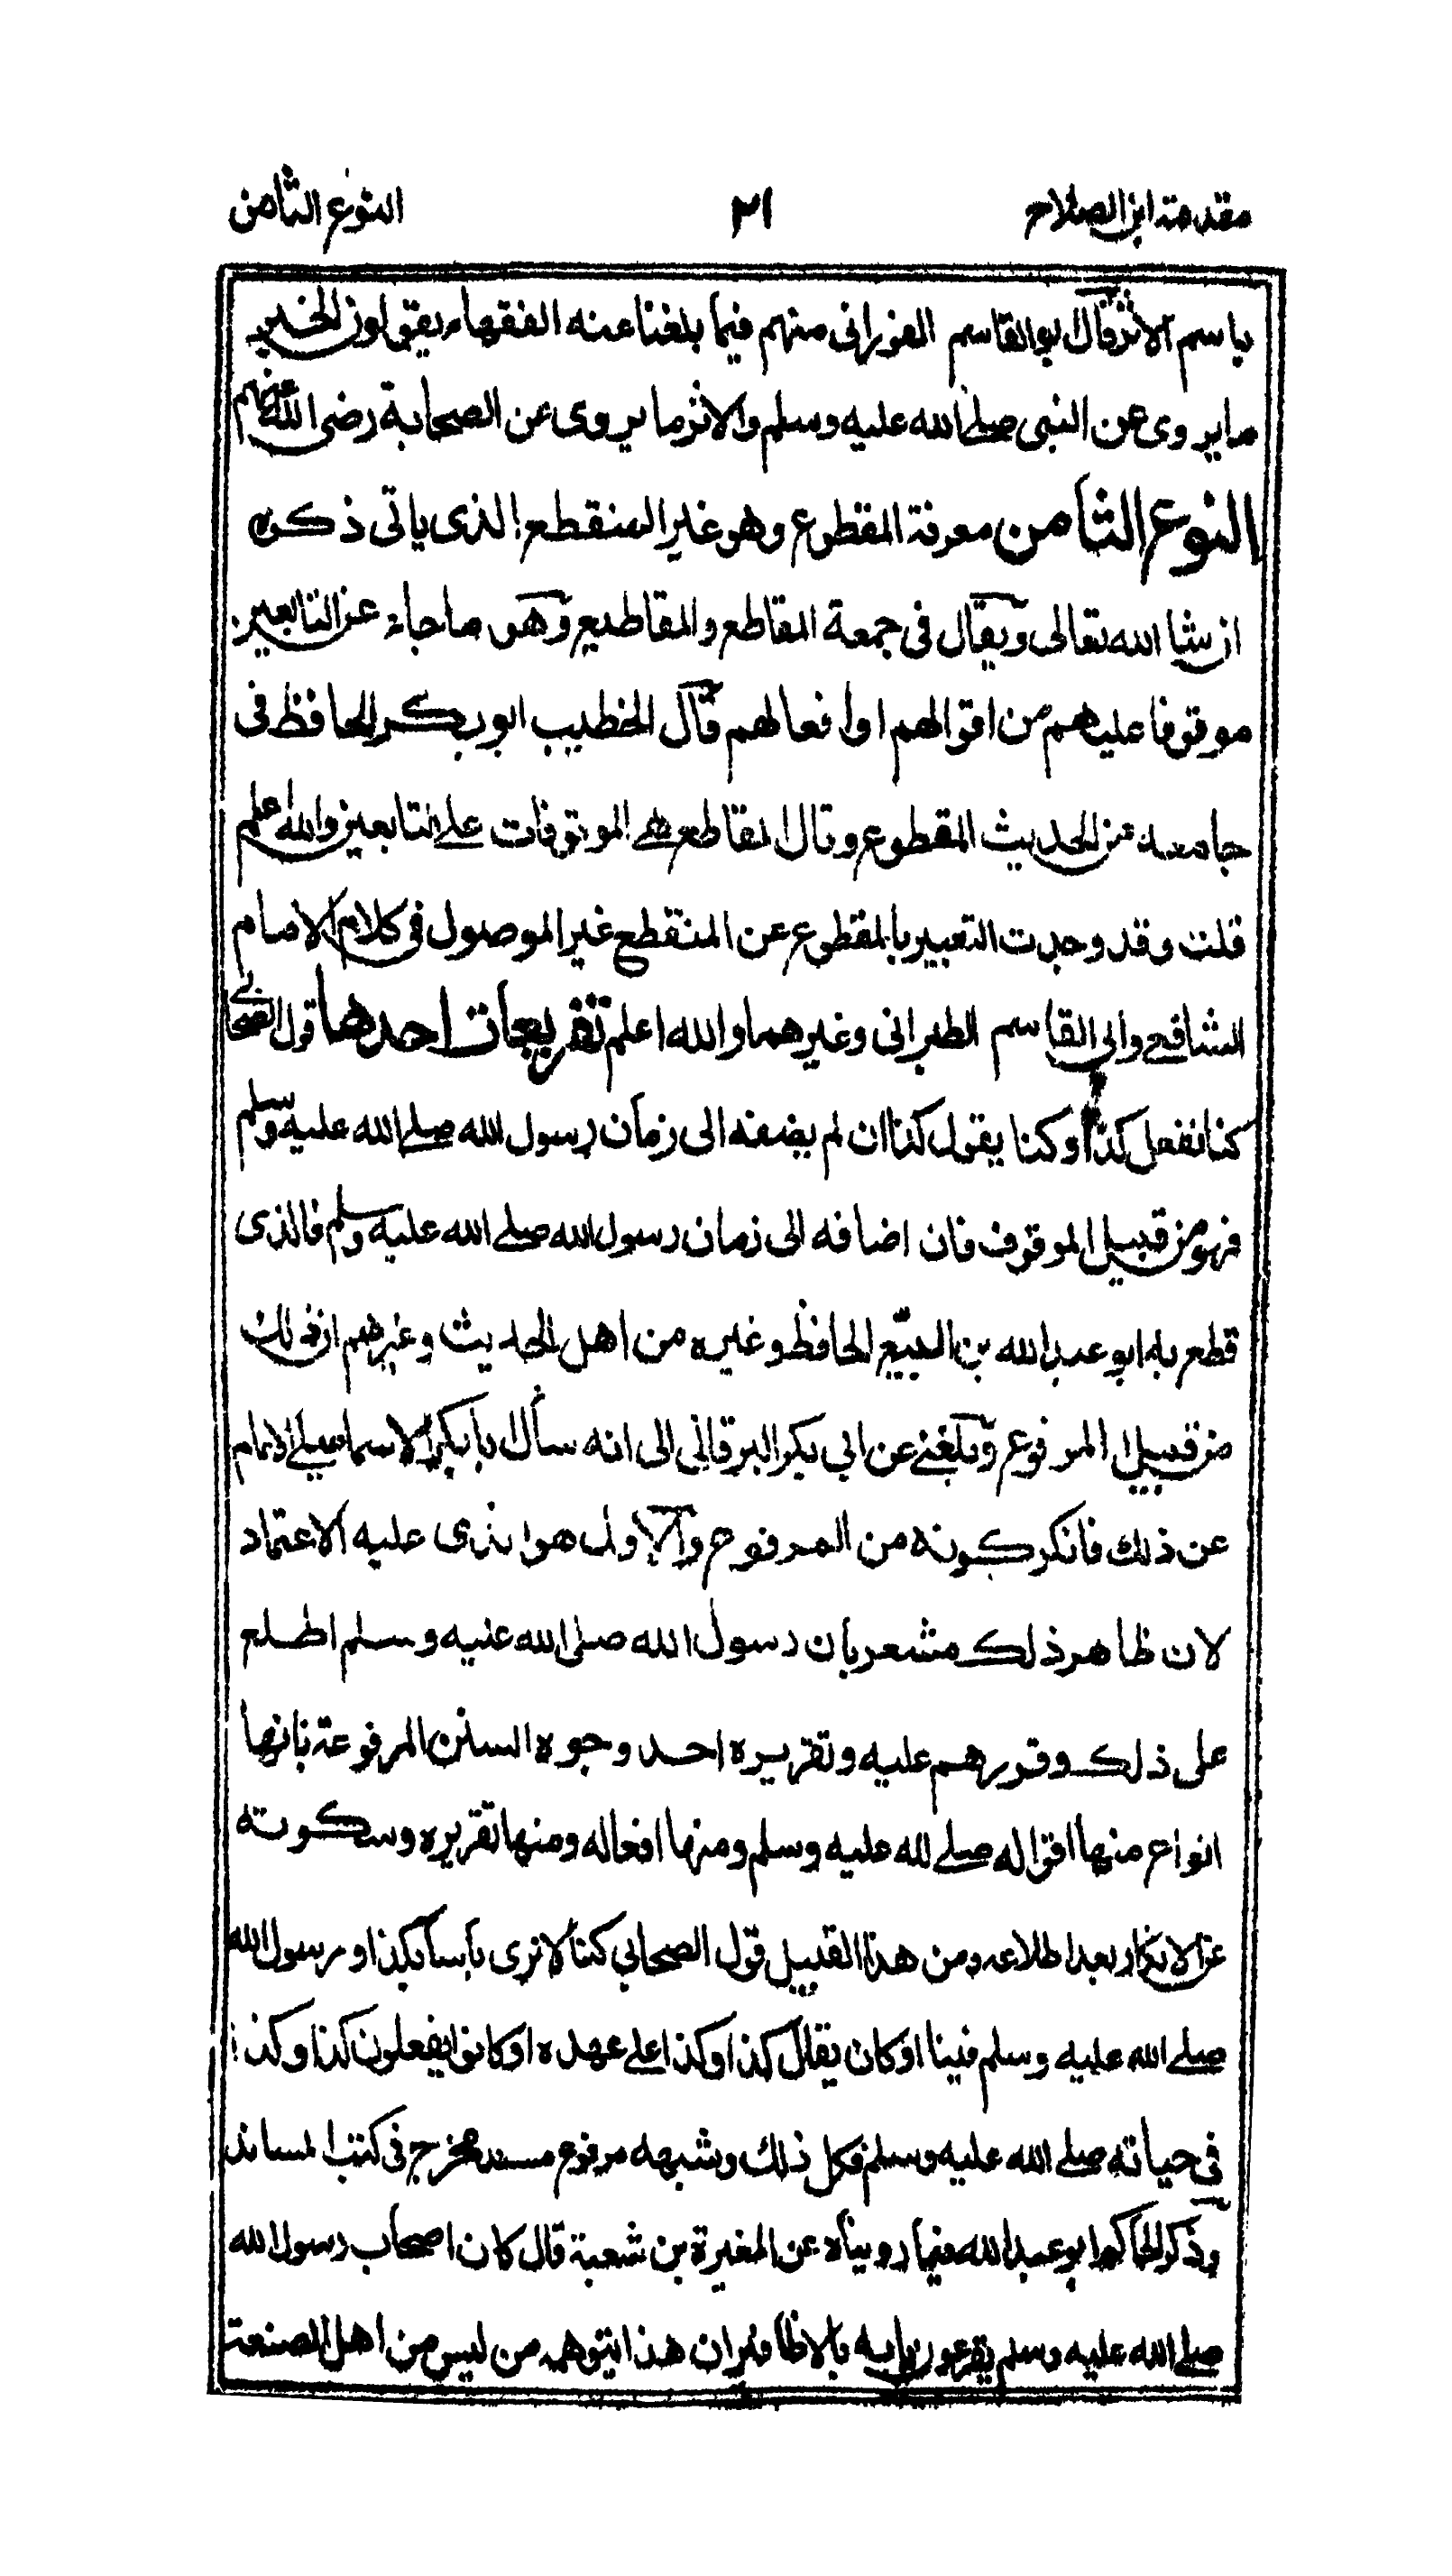 مقدمة ابن الصلاح ٢١ النوع الثامن
باسم الاثر قال ابو القاسم الفورانى منهم فيما بلغنا عنه الفقهاء يقولون الخبر
ما يروى عن النبى صلے الله عليه وسلم والاثر ما يروى عن الصحابة رضى الله عنهم
النوع الثامن معرفة المقطوع وهو غير المنقطع الذى ياتى ذكره
ان شا الله تعالى ويقال فى جمعة المقاطع والمقاطيع وهو ما جاء عن التابعين
موقوفا عليهم من اقوالهم او افعالهم قال الخطيب ابو بكر الحافظ فى
جامعه من الحديث المقطوع وقال المقاطع هے الموقوفات علے التابعين والله اعلم
قلت وقد وجدت التعبير بالمقطوع عن المنقطع غير الموصول فى كلام الامام
الشافعے وابى القاسم الطبرانى وغيرهما والله اعلم تفريعات احدها قول الصحابى
كنا نفعل كذا او كنا يقول كذا ان لم يضفه الى زمان رسول الله صلے الله عليه وسلم
فهو من قبيل الموقوف فان اضافه الى زمان رسول الله صلے الله عليه وسلم فالذى
قطع به ابو عبد الله بن البيّع الحافظ وغيره من اهل الحديث وغيرهم ان ذلك
من قبيل المرفوع وبلغنے عن ابى بكر البرقانى الى انه سأل بابكر الاسماعيلے الامام
عن ذلك فانكر كونه من المرفوع والاول هو الذى عليه الاعتماد
لان ظاهر ذلك مشعر بان رسول الله صلى الله عليه وسلم اطلع
على ذلك وقررهم عليه وتقريره احد وجوه السنن المرفوعة بانها
انواع منها اقواله صلے الله عليه وسلم ومنها افعاله ومنها تقريره وسكوته
عن الانكار بعد اطلاعه ومن هذا القبيل قول الصحابى كنا لا نرى بأسا بكذا ورسول الله
صلے الله عليه وسلم فينا او كان يقال كذا وكذا علے عهده او كانوا يفعلون كذا وكذا
فى حياته صلے الله عليه وسلم فكل ذلك وشبهه مرفوع مسند مخرج فى كتب المساند
وذكر الحاكم ابو عبد الله فيما رويناه عن المغيرة بن شعبة قال كان اصحاب رسول الله
صلے الله عليه وسلم يقرعون بابه بالاظافير ان هذا يتوهمه من ليس من اهل الصنعة